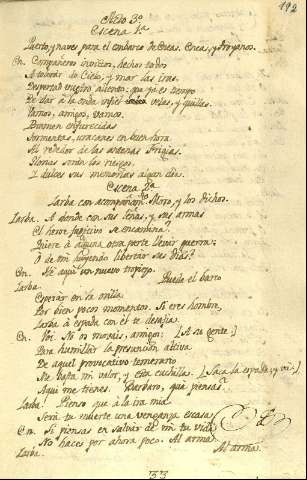 192
Acto 3º
Escena 1ª
Puerto, y naves para el embarco de Eneas. Eneas, y Troyanos.
En. Compañeros invictos, hechos todos
A tolerar de Cielo, y mar las iras.
Despertad vuestro aliento, que ya es tiempo
De dar a la onda infiel velas, y quillas.
Vamos, amigos, vamos.
Bramen enfurecidas
Tormentas, uracanes en buen hora
Al rededor de las entenas Frigias.
Glorias serán los riesgos,
I dulces sus memorias algun dia.
Escena 2ª
Iarba con acompañamto Moro, y los dichos.
Iarba. A donde con sus leños, y sus armas
El heroe fugitivo se encamina?
Quiere à alguna otra parte llevar guerra;
O de mi huyendo libertar sus dias?
En. He aqui un nuevo tropiezo.
Iarba. Puede el barco
Esperar en la orilla
Por bien pocos momentos. Si eres hombre,
Iarba à espada con el te desafia
En. Voi. No os movais, amigos: [A su gente.]
Para humillar la presuncion altiva
De aquel provocativo temerario
Me basta mi valor, y esta cuchilla. [Saca la espada, y vi:]
Aqui me tienes. Barbaro, que piensas?
Iarba. Pienso que à la ira mia
Será tu muerte una venganza escasa
En. Si piensas en salvar de mi tu vida
No haces por ahora poco. Al arma.
Iarba. Al arma.
33